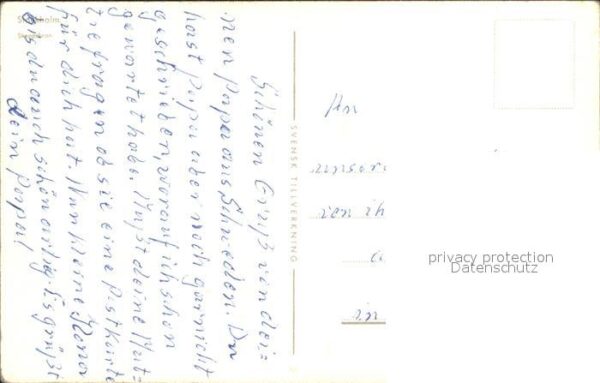 Stockholm
Schönen Gruß von dei=
nen Papa aus Schweden. Du
hast Papa aber noch garnicht
geschrieben, worauf ich schon
gewartet habe. Mußt deine Mut=
ti fragen ob sie eine Postkarte
für dich hat. Nun kleine
bis du auch schön artig. Es grüßt
dein Papa!
SVENSK TILLVERKNING
An
privacy protection
Datenschutz